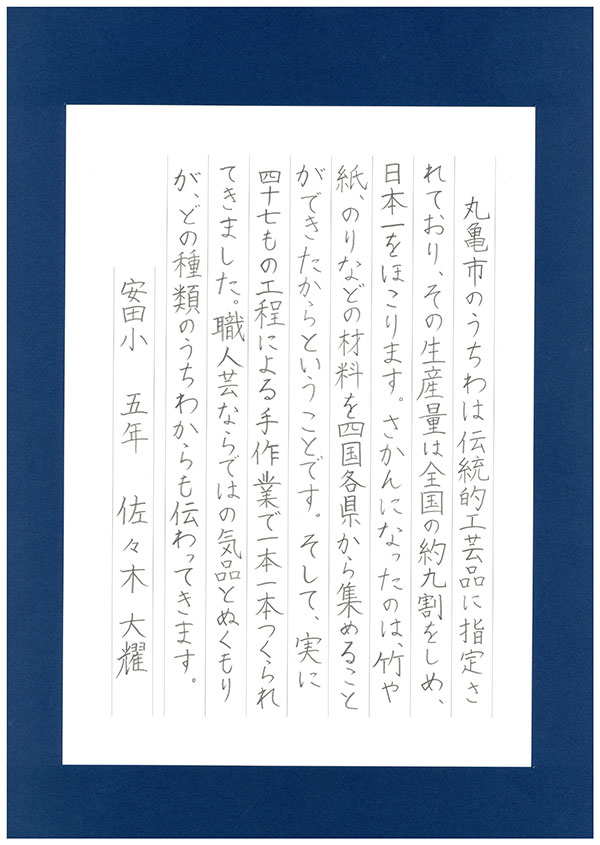 丸亀市のうちわは伝統的工芸品に指定さ
れており、その生産量は全国の約九割をしめ、
日本一をほこります。さかんになったのは、竹や
紙、のりなどの材料を四国各県から集めること
ができたからということです。そして、実に
四十七もの工程による手作業で一本一本つくられ
てきました。職人芸ならではの気品とぬくもり
が、どの種類のうちわからも伝わってきます。
安田小 五年 佐々木大耀